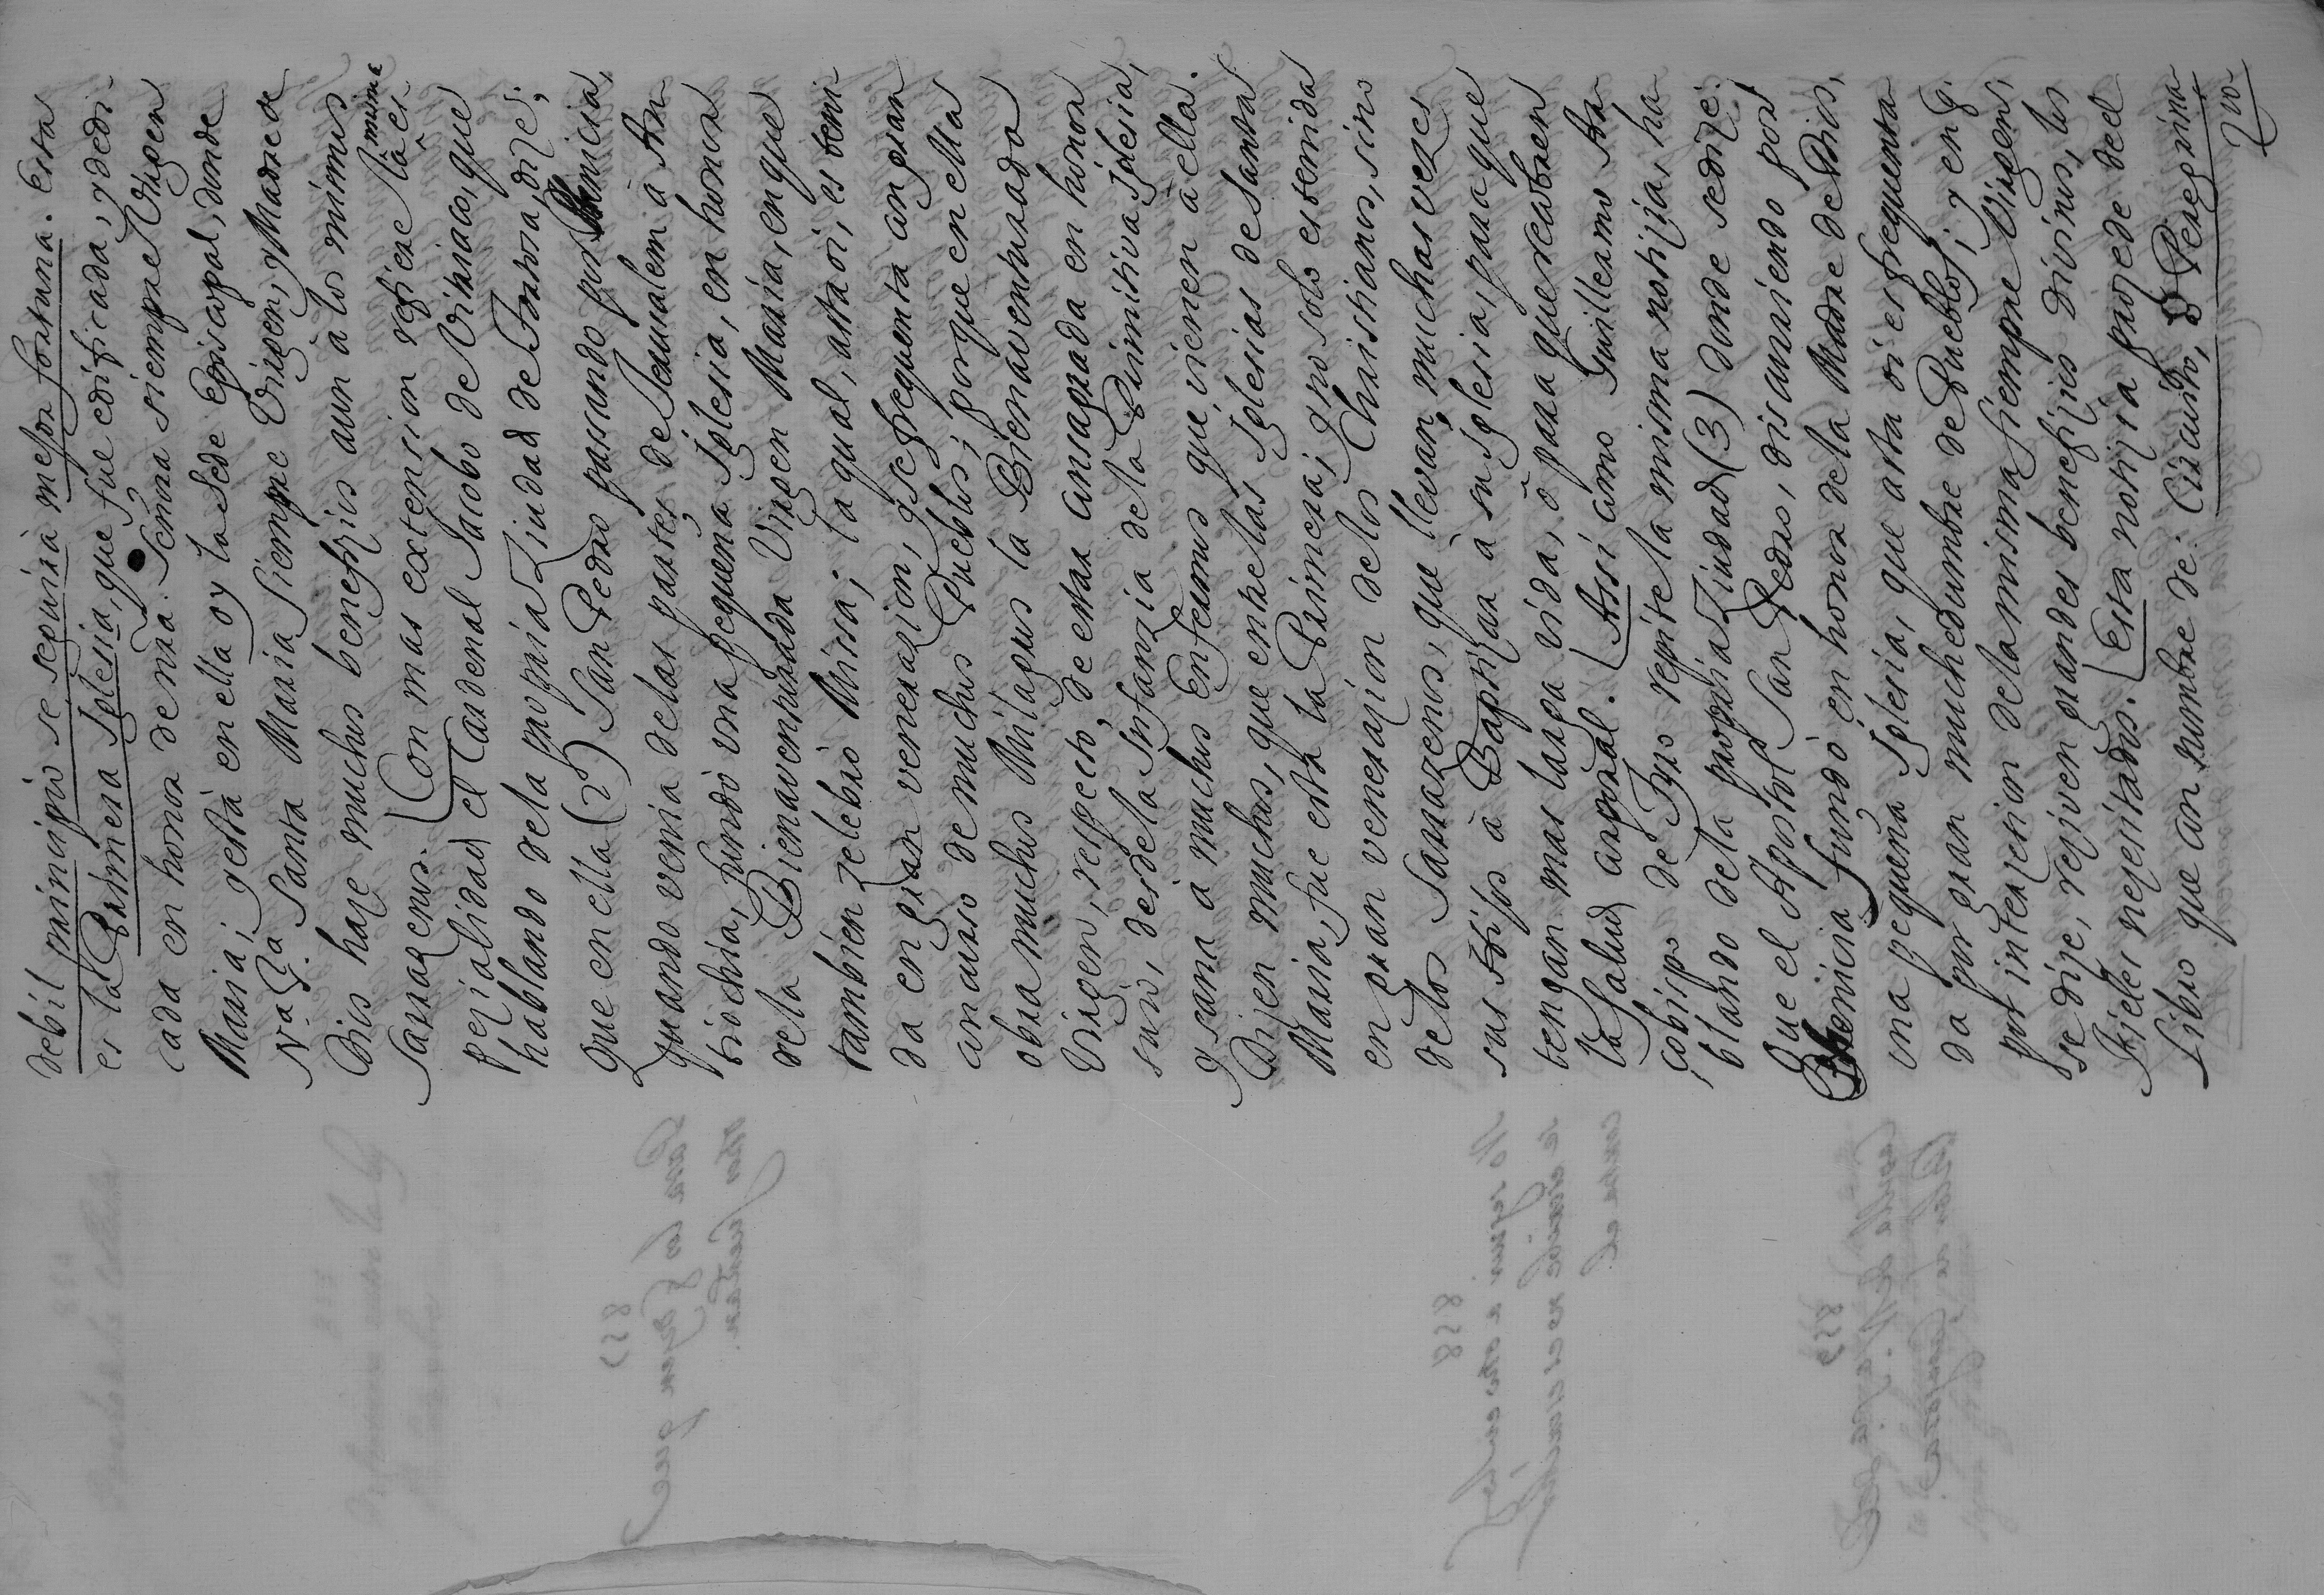 debil principio se seguirà mejor fortuna. Esta
es la Primera Iglesia, que fue edificada, y dedi
cada en honor de nrâ. Señora siempre Virgen
Maria; y està en ella oy la Sede Episcopal, donde
Nrâ. Srâ. Santa Maria siempre Virgen, y Madre de
Dios haze muchos benefizios aun a los mismos
Sarrazenos. Con mas extension refiere la misma es
pezialidad el Cardenal Jacobo de Vitriaco, que
hablando de la propria Ziudad de Tortora, dize:
Que en ella (2) San Pedro passando por Phenicia,
quando venia de las partes de Jerusalem à An
tiochia, fundò una pequeña Iglesia, en honor
de la Bienaventurada Virgen Maria, en que
tambien zelebrò Missa; la qual, asta oi, es teni
da en gran venerazion, y se frequenta con gran
concurso de muchos Pueblos; porque en ella
obra muchos Milagros la Bienaventurada
Virgen, respecto, de estar consagrada en honor
suio, desde la Infanzia de la Primitiva Iglesia,
y sana a muchos Enfermos que vienen à ella.
Dizen muchos, que entre las Iglesias de Santa
Maria, fue esta la Primera; y no solo es tenida
en gran venerazion de los Christianos, sino
de los Sarrazenos, que llevan muchas vezes
sus Hijos à Baptizar à su Iglesia, para que
tengan mas larga vida, ò para que recobren
la salud corporal. Assi como Guillermo Ar
zobispo de Tyro repite la misma notizia, ha
blando de la propria Ziudad (3) donde se dize:
Que el Apostol San Pedro, discurriendo por
Phenicia fundò en honor de la Madre de Dios,
una pequeña Iglesia, que asta oi es frequenta
da por gran muchedumbre de Pueblos; y en q.
por interzesion de la misma siempre Virgen,
se dize, reziven grandes benefizios divinos, los
Fieles nezesitados. Esta notizia prozede del
Libro que con nombre de: Circuito, ò Peregrina
zio